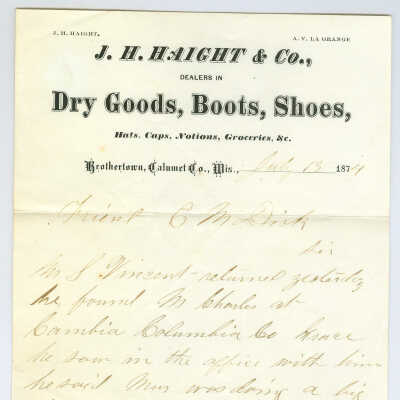 J. H. HAIGHT. A. V. LA GRANGE
J. H. HAIGHT & Co.,
DEALERS IN
Dry Goods, Boots, Shoes,
Hats, Caps, Notions, Groceries, &c.
Brothertown, Calumet Co., Wis., July 13 1874
Friend C M
Sir
Mr S Vincent returned yesterday
he found M Charles at
Cambia Columbia Co
he saw in the office with him
he said was doing a big